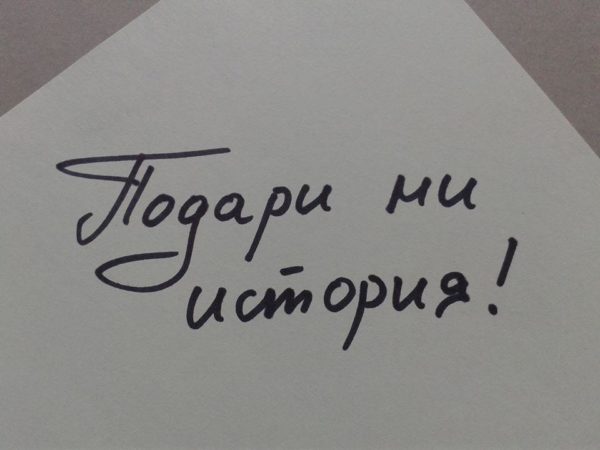 Подари ни
история!